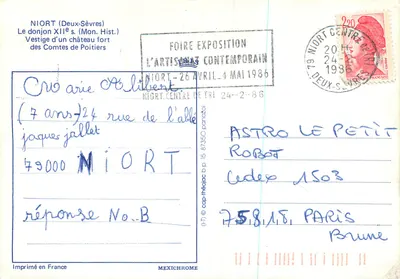 NIORT (Deux-Sèvres)
Le donjon XIIe s. (Mon. Hist.)
Vestige d'un château fort
des Comtes de Poitiers
FOIRE EXPOSITION
L'ARTISANAT CONTEMPORAIN
NIORT - 26 AVRIL - 4 MAI 1986
NIORT CENTRE DE TRI 24-2-86
79 NIORT CENTRE DE TRI
20H
24-2
1986
DEUX-SEVRES
2,20
(7 ans) 24 rue de l'abbé
jaques jallet
79000 NIORT
réponse No_B
ASTRO LE PETIT
ROBOT
Cedex 1503
75818 PARIS
Brune
Imprimé en France
MEXICHROME